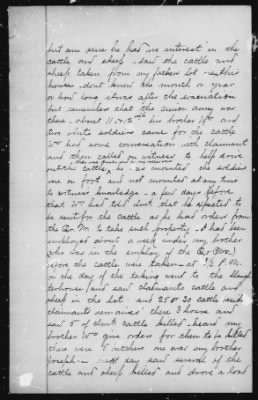 but am sure he has no interest in the
cattle and sheep - saw the cattle and
sheep taken from my father lot - at his
house - don't know the month or year
or how long it was after the evacuation
but remember that the union army was
there - about 11 or 12 his brother Wm and
two white soldiers came for the cattle
Wm had some conversation with claimant
and then called on witness to help drive
out the cattle - he - is mounted the soldiers
on foot and not mounted at any time
to witness knowledge - a few days before
that Wm had told that he expected to
be sent for the cattle as he had orders from
the Qr M. to take such property - I had been
employed about a week under my brother
who was in the employ of the Qr M.
upon the cattle were taken - at
in the day of the taking went to the slaugh
terhouse and saw claimants cattle and
sheep in the lot and 25 or 30 cattle beside
claimants remained there 3 hours and
saw 5 of cattle killed - heard my
brother Wm give orders for them to be killed
there were 5 butchers one was my brother
Joseph - next day saw several of the
cattle and sheep killed and drove a load